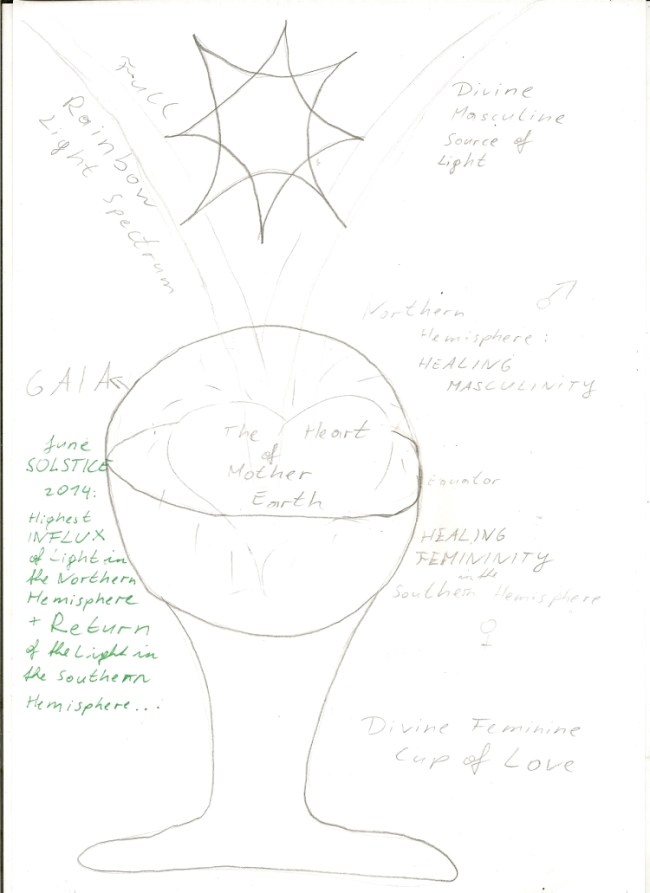 Full
Rainbow
Light Spectrum
Divine
Masculine
Source of
Light
Northern
Hemisphere:
HEALING
MASCULINITY
GAIA
The Heart
of
Mother
Earth
Equator
June
SOLSTICE
2014:
Highest
INFLUX
of Light in
the Northern
Hemisphere
+ Return
of the Light in
the Southern
Hemisphere...
HEALING
FEMININITY
in the
Southern Hemisphere
Divine Feminine
Cup of Love